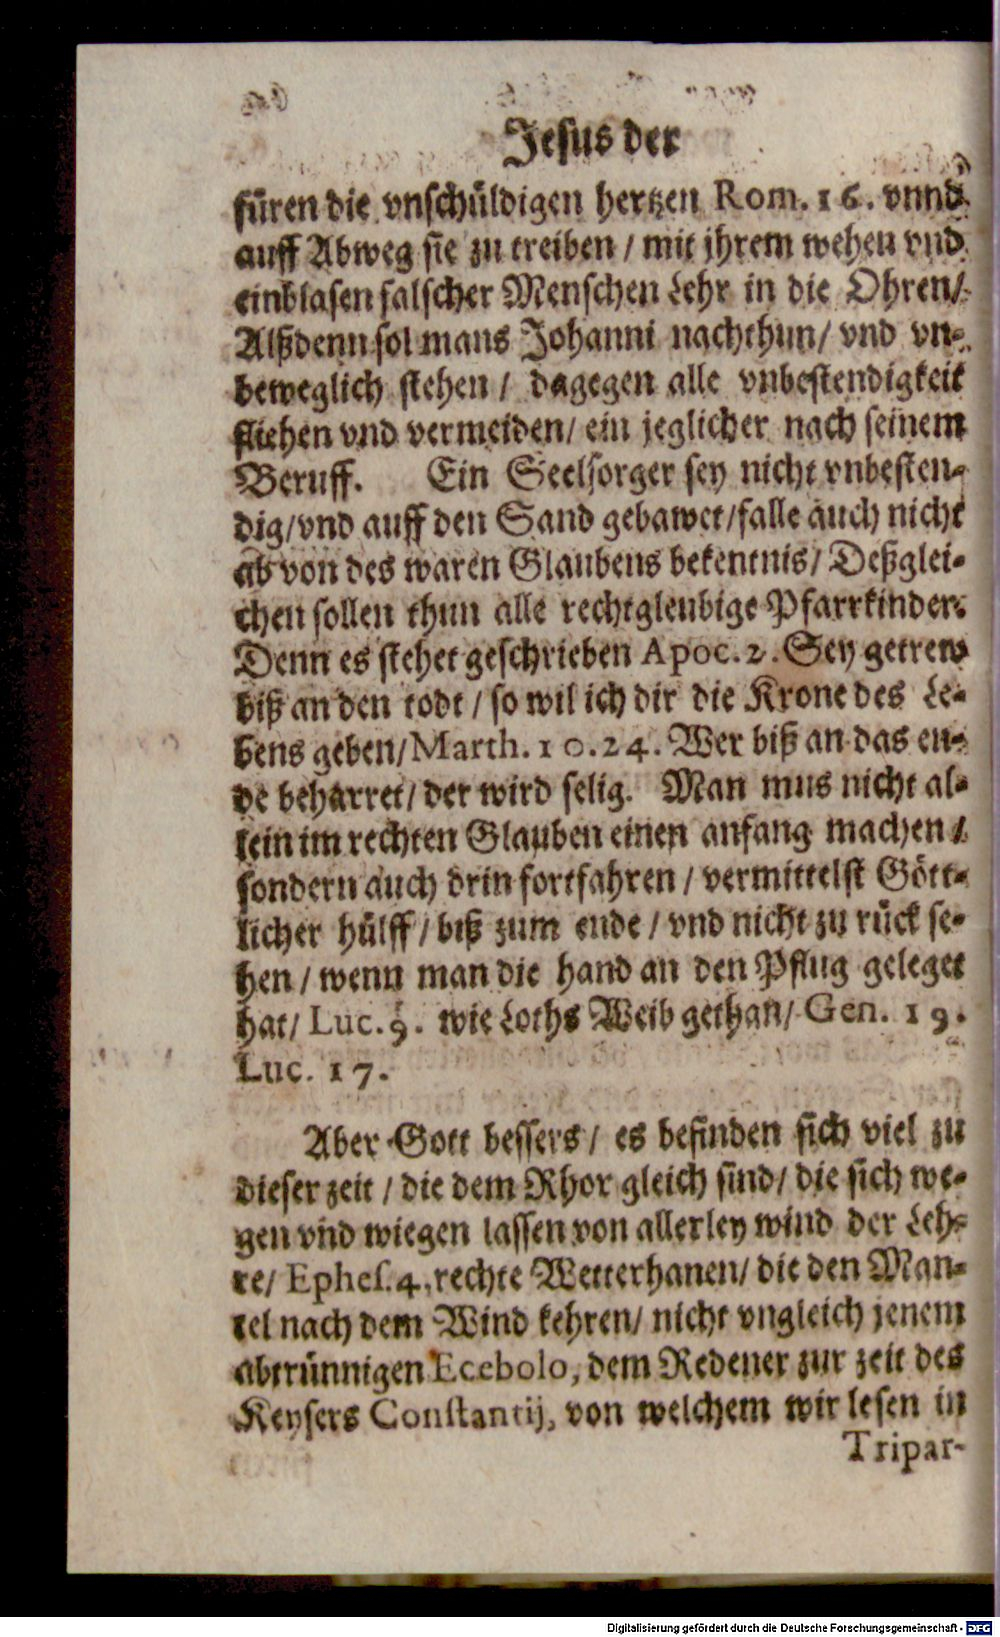 Jesus der
füren die vnschüldigen hertzen Rom. 16. vnnd
auff Abweg sie zu treiben / mit jhrem wehen vnd
einblasen falscher Menschen Lehr in die Ohren/
Alßdenn sol mans Johanni nachthun/ vnd vn-
beweglich stehen / dagegen alle vnbestendigkeit
fliehen vnd vermeiden/ ein jeglicher nach seinem
Beruff. Ein Seelsorger sey nicht vnbesten-
dig/vnd auff den Sand gebawet/falle auch nicht
ab von des waren Glaubens bekentnis/ Deßglei-
chen sollen thun alle rechtgleubige Pfarrkinder.
Denn es stehet geschrieben Apoc. 2. Sey getrew
biß an den todt / so wil ich dir die Krone des Le-
bens geben/Matth. 10. 24. Wer biß an das en-
de beharret/ der wird selig. Man mus nicht al-
lein im rechten Glauben einen anfang machen /
sondern auch drin fortfahren / vermittelst Gött-
licher hülff / biß zum ende / vnd nicht zu rück se-
hen / wenn man die hand an den Pflug geleget
hat/ Luc. 9. wie Loths Weib gethan/ Gen. 19.
Luc. 17.
Aber Gott bessers / es befinden sich viel zu
dieser zeit / die dem Rhor gleich sind/ die sich we-
gen vnd wiegen lassen von allerley wind der Leh-
re/ Ephes. 4. rechte Wetterhanen/ die den Man-
tel nach dem Wind kehren/ nicht vngleich jenem
abtrünnigen Ecebolo, dem Redener zur zeit des
Keysers Constantij, von welchem wir lesen in
Tripar-
Digitalisierung gefördert durch die Deutsche Forschungsgemeinschaft - DFG